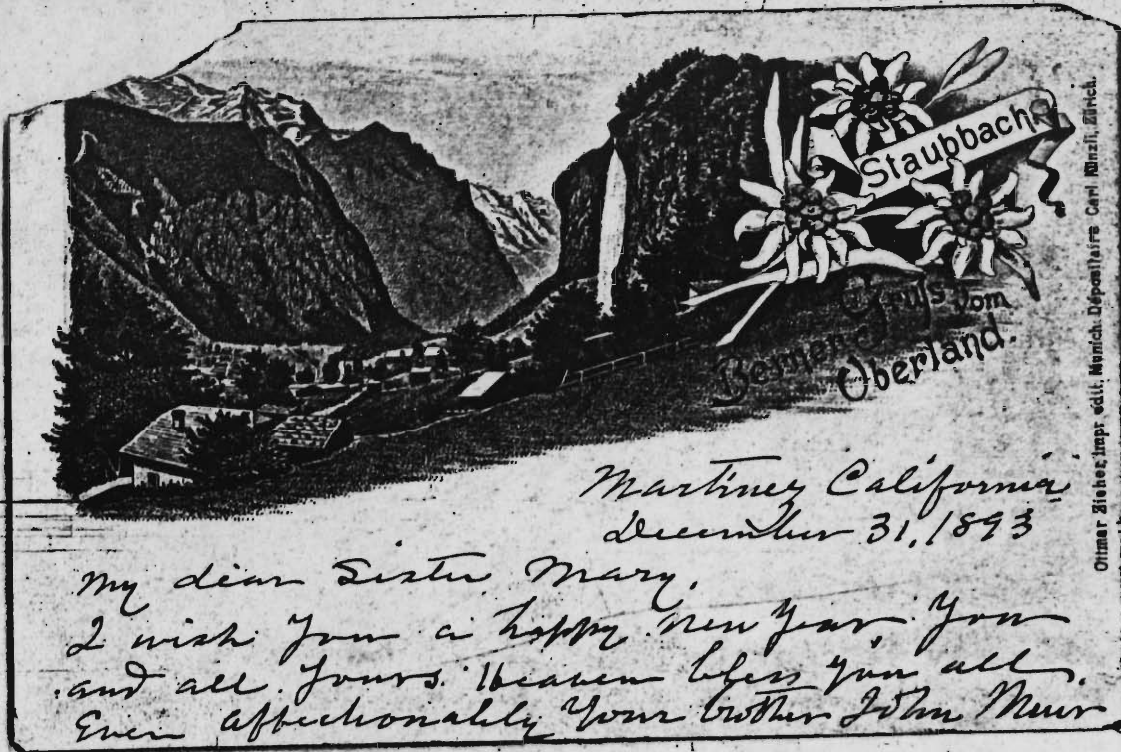 Staubbach
Gruss vom
Berner Oberland.
Ottmar Zieher, impr. édit. Munich. Dépositaire Carl Künzli, Zürich.
Martinez California
December 31, 1893
My dear Sister Mary,
I wish you a happy new year. You
and all yours. Heaven bless you all.
Ever affectionately your brother John Muir